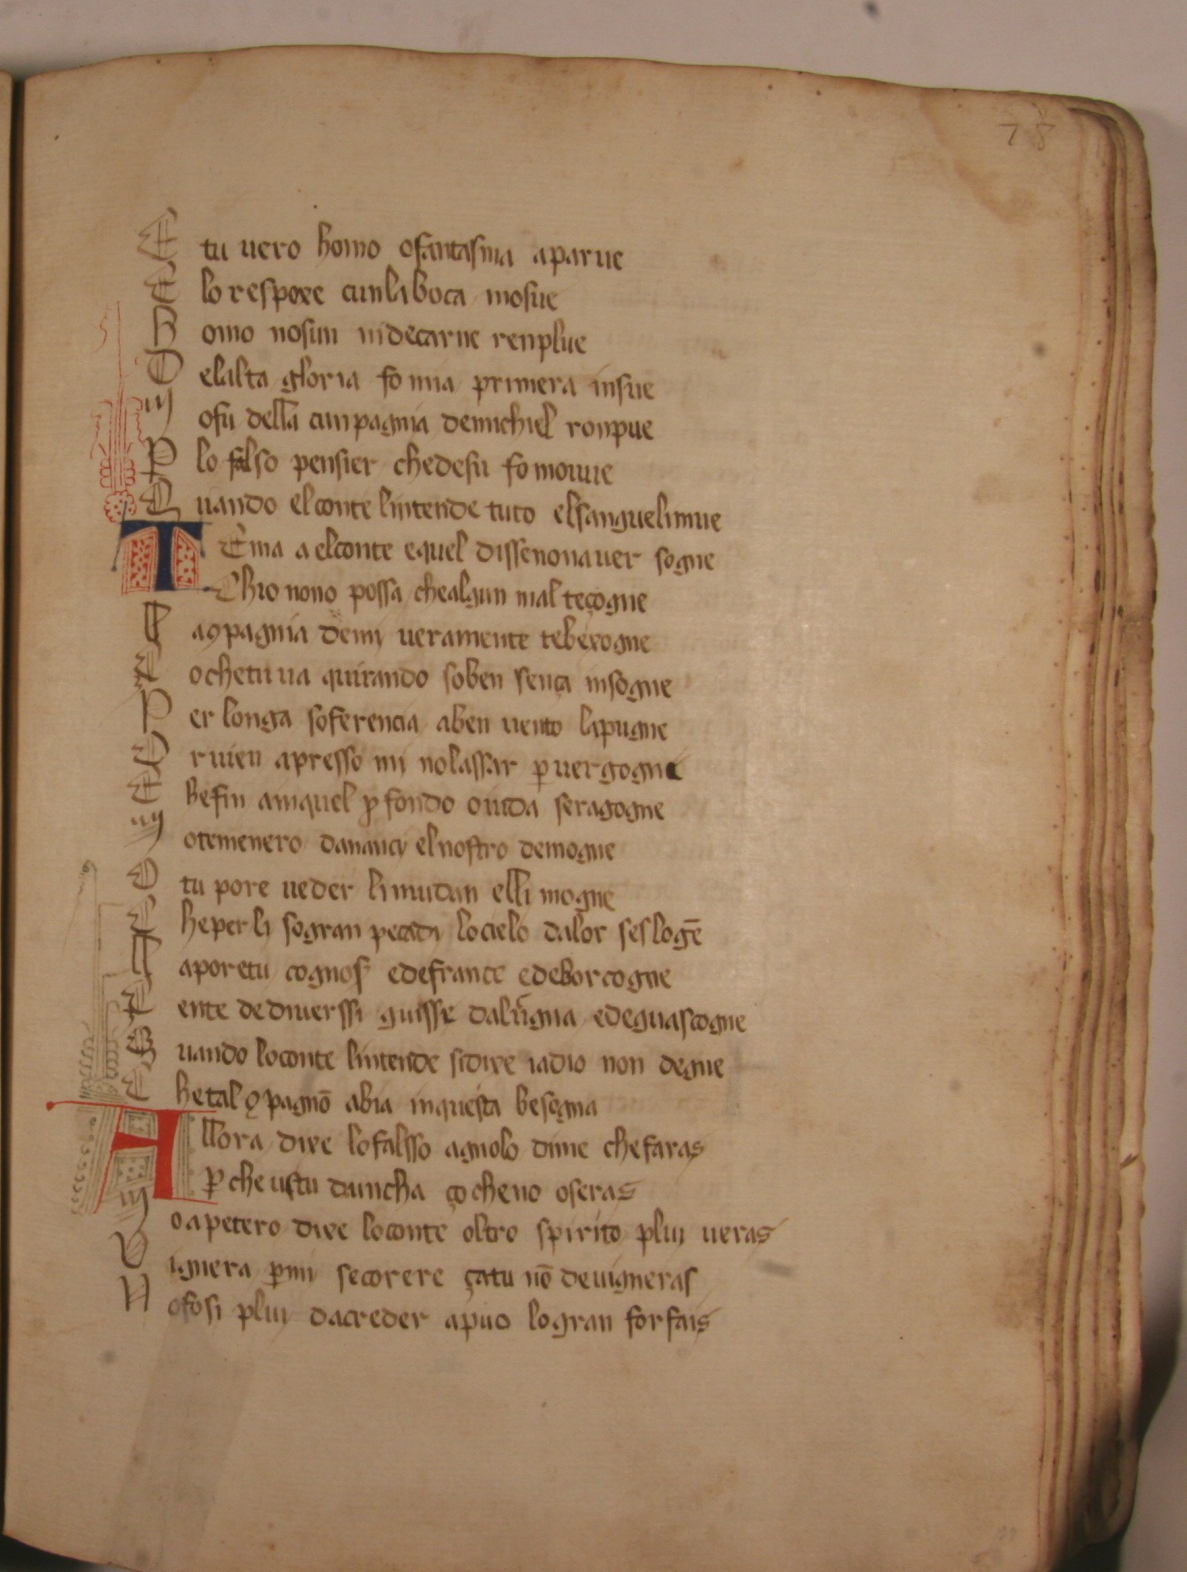 78
E tu uero homo ofantasma aparue
E lo respoxe cun la boca mosue
H omo nosun ni de carne renplue
D elalta gloria fo mia primera insue
M ofu della cunpagnia demichiel ronpue
P lo falso pensier chedesu fo mouue
Q uando elconte lintende tuto elsanguelimue
T Ema a elconte equel disse nonauer sogne
Chio nono possa chealgun mal teçogne
C a9pagnia demi ueramente tebexogne
T ochetu ua quirando soben sença insogne
P er longa soferencia aben uento lapugne
O r uien apresso mi nolassar p uergogne
E befin amquel pfondo oiuda seragogne
M otemenero dananci elnostro demogne
O tu pore ueder li mudan elli mogne
C heperli sogran pecadi locielo dalor seslogē
A aporetu cognos edefrance edeborcogne
C ente dediuerssi guisse dalūgnia edeguascogne
Q uando loconte lintende sidixe iadio non degne
C hetal 9pagnō abia inquesta besogna
A llora dixe lofalsso agnolo dime chefaras
p che ustu daincha çocheno oseras
M oapetero dixe loconte oltro spirito plui ueras
V ignera pmi secorere çatu nō deuigneras
N ofosi plui dacreder apuo logran forfais